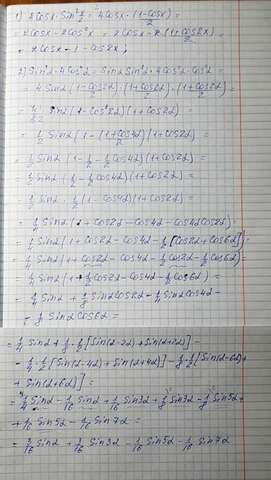 1) 2cosx·sin²x/2 = 4cosx·(1-cosx)/2 =
= 2cosx - 2cos²x = 2cosx - 2·(1+cos2x)/2 =
= 2cosx - 1 - cos2x;
2) Sin³α·4cos²α = sinα sin²α·4cos²α·cos²α =
= 4sinα·(1-cos2α)/2·(1+cos2α)/2·(1+cos2α)/2 =
= 4/8 sinα(1-cos²2α)(1+cos2α) =
= 1/2 sinα(1-(1+cos4α)/2)(1+cos2α) =
= 1/2 sinα(1-1/2-1/2cos4α)(1+cos2α) =
= 1/2 sinα(1/2-1/2cos4α)(1+cos2α) =
= 1/2 sinα·1/2(1-cos4α)(1+cos2α) =
= 1/4 sinα(1+cos2α-cos4α-cos4αcos2α) =
= 1/4 sinα(1+cos2α-cos4α-1/2[cos2α+cos6α]) =
= 1/4 sinα(1+cos2α-cos4α-1/2cos2α-1/2cos6α) =
= 1/4 sinα(1+1/2cos2α-cos4α-1/2cos6α) =
= 1/4 sinα+1/8 sinαcos2α-1/4 sinαcos4α-
-1/8 sinαcos6α =
= 1/4 sinα+1/8·1/2[sin(α-2α)+sin(α+2α)]-
-1/4·1/2[sin(α-4α)+sin(α+4α)]-1/8·1/2[sin(α-6α)+
+sin(α+6α)] =
= 1/4 sinα-1/16 sinα+1/16 sin3α+1/8 sin3α-1/8 sin5α+
+1/16 sin5α-1/16 sin7α =
= 3/16 sinα+3/16 sin3α-1/16 sin5α-1/16 sin7α